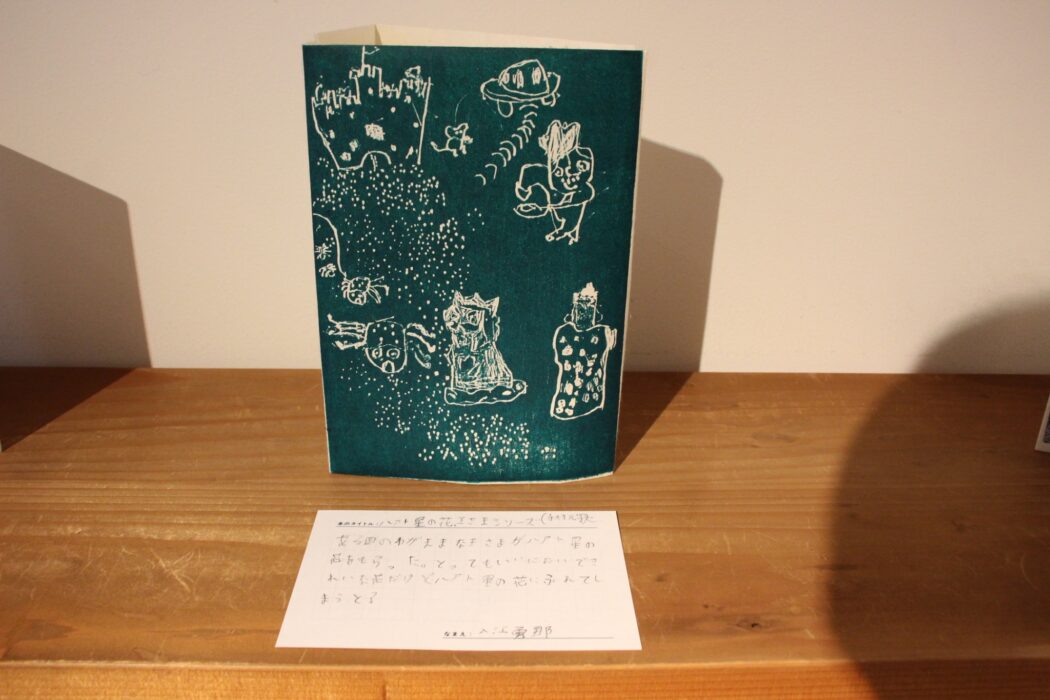 本のタイトル: ハート星の花、王さまシリーズ
ある国のわがままな王さまがハート星の
花をもらった。とってもいいにおいできれ
いな花だけどハート星の花にふれてし
まうと
なまえ: 入江